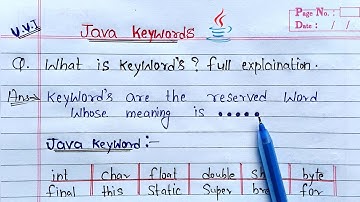 V.V.I
Java Keywords
Page No. :
Date : / /
Q. What is Keyword's? full explaination.
Ans→ Keyword's are the reserved Word
Whose meaning is .....
Java Keyword :-
int char float double sh byte
final this Static Super bre for